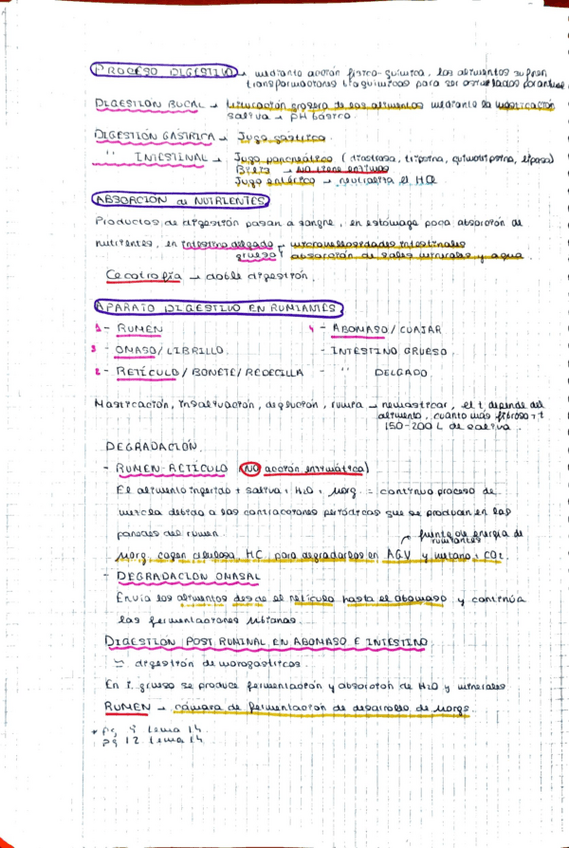 PROCESO DIGESTIVO → mediante acción físico-química, los alimentos sufren
transformaciones bioquímicas para ser asimilados por animal
DIGESTION BUCAL → trituración grosera de los alimentos mediante la masticación
saliva → pH básico
DIGESTION GASTRICA → Jugo gástrico
" INTESTINAL → Jugo pancreático (diastasa, tripsina, quimotripsina, lipasa)
Bilis → NO tiene enzimas
Jugo entérico → neutraliza el HCl
ABSORCION de NUTRIENTES
Productos de digestión pasan a sangre, en estómago poca absorción de
nutrientes, en intestino delgado → microvellosidades intestinales
grueso → absorción de sales minerales y agua
Cecotrofia → doble digestión.
APARATO DIGESTIVO EN RUMIANTES
1 - RUMEN 4 - ABOMASO / CUAJAR
3 - OMASO / LIBRILLO. - INTESTINO GRUESO.
2 - RETÍCULO / BONETE / REDECILLA - " DELGADO.
Masticación, insalivación, deglución, rumia → remasticar, el t depende del
alimento, cuanto más fibroso + t
150-200 L de saliva.
DEGRADACIÓN
- RUMEN-RETICULO (NO acción enzimática)
El alimento ingerido + saliva + H2O + Morg. = continuo proceso de
mezcla debido a las contracciones periódicas que se producen en las
paredes del rumen.
fuente de energía de
rumiantes
Morg. cogen celulosa, HC para degradarlos en AGV y metano + CO2.
- DEGRADACION OMASAL
Envía los alimentos desde el retículo hasta el abomaso y continúa
las fermentaciones
DIGESTION POST RUMINAL EN ABOMASO E INTESTINO
≃ digestión de monogástricos.
En I. grueso se produce fermentación y absorción de H2O y minerales
RUMEN → cámara de fermentación de desarrollo de Morgs.
* pg 9 tema 14.
pg 12 tema 14.